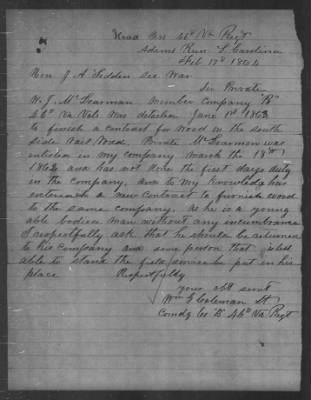 Head Qrs 46th Va Regt
Adams Run S. Carolina
Feb 17th 1864
Hon J. A. Seddon Sec War
Sir Private
W. J. McLearman Member Company "B"
46th Va Vols was detailed June 1st 1863
to finish a contract for wood in the south
side Rail Road. Private McLearmen was
enlisted in my company march the 18th
1862 and has not done the first days duty
in the Company, and to my knowledge has
entered a new contract to furnish wood
to the same company. As he is a young
able bodied man without any incumbrance
I respectfully ask that he should be returned
to his Company and some person that is less
able to stand the field service be put in his
place Respectfully
your obt servt
Wm G Coleman Lt
Comdg Co. B 46th Va Regt